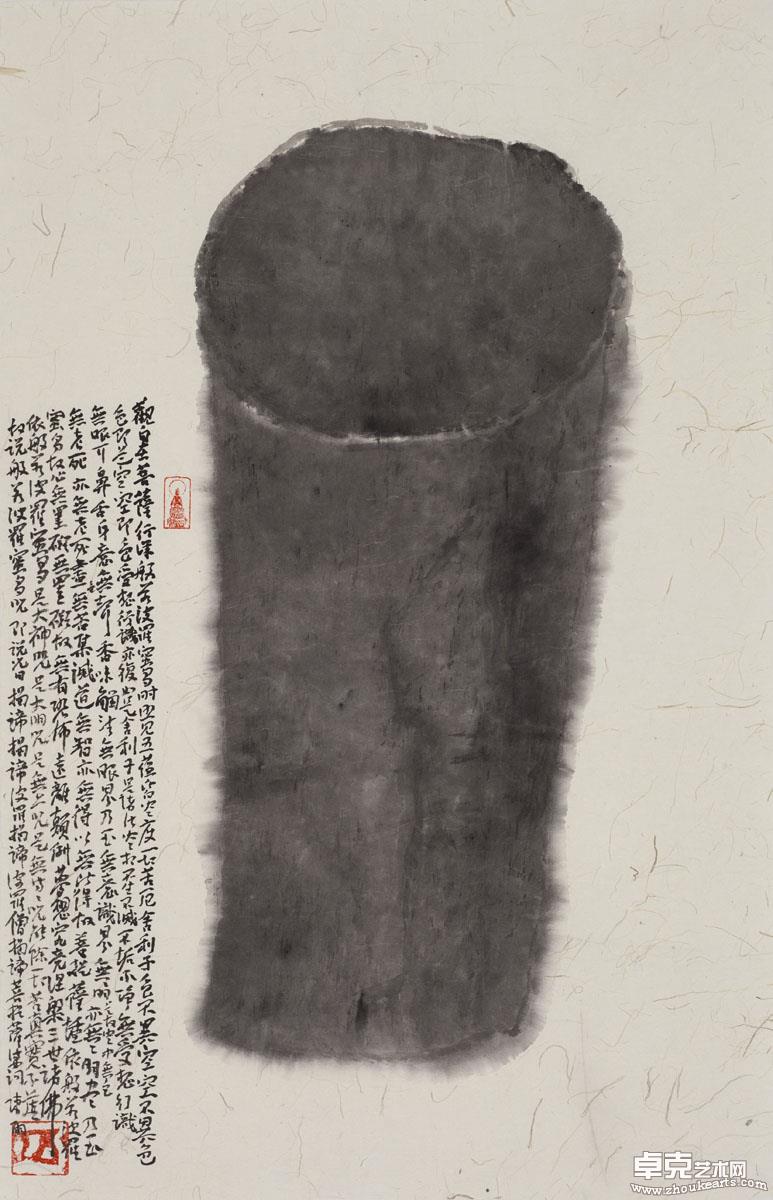 觀自在菩薩行深般若波羅蜜多時照見五蘊皆空度一切苦厄舍利子色不異空空不異色
色即是空空即是色受想行識亦復如是舍利子是諸法空相不生不滅不垢不淨無受想行識
無眼耳鼻舌身意無聲香味觸法無眼界乃至無意識界無明亦無無明盡乃至
是故空中無色
無老死亦無老死盡無苦集滅道無智亦無得以無所得故菩提薩埵依般若波羅
蜜多故心無罣礙無罣礙故無有恐怖遠離顛倒夢想究竟涅槃三世諸佛
依般若波羅蜜多是大神咒是大明咒是無上咒是無等等咒能除一切苦真實不虛
故說般若波羅蜜多咒即說咒曰揭諦揭諦波羅揭諦波羅僧揭諦菩提薩婆訶
卓克艺术网
www.zhoukearts.com